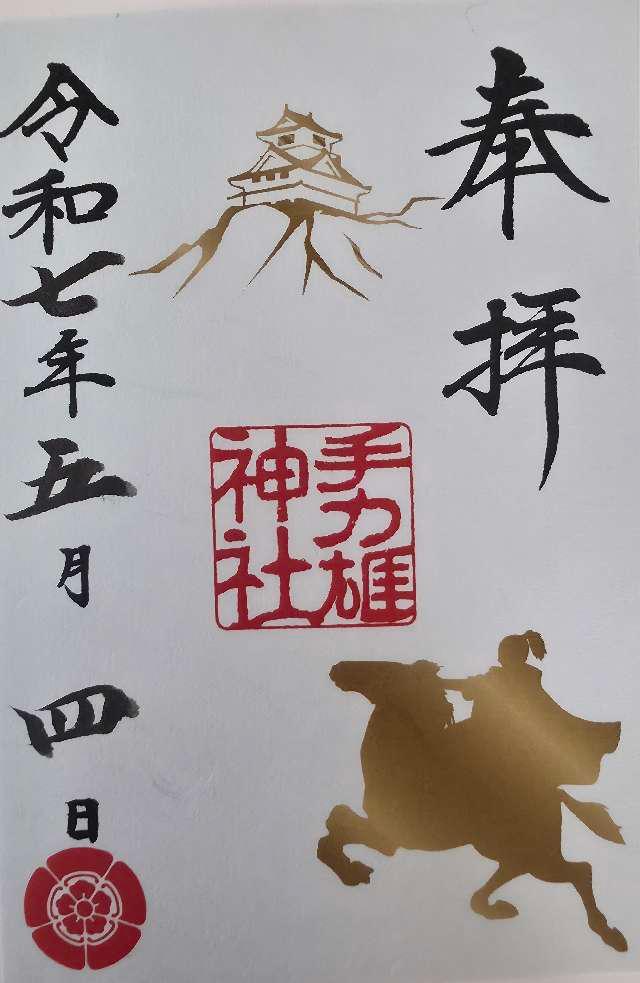 奉拝
手力雄
神社
令和七年五月四日